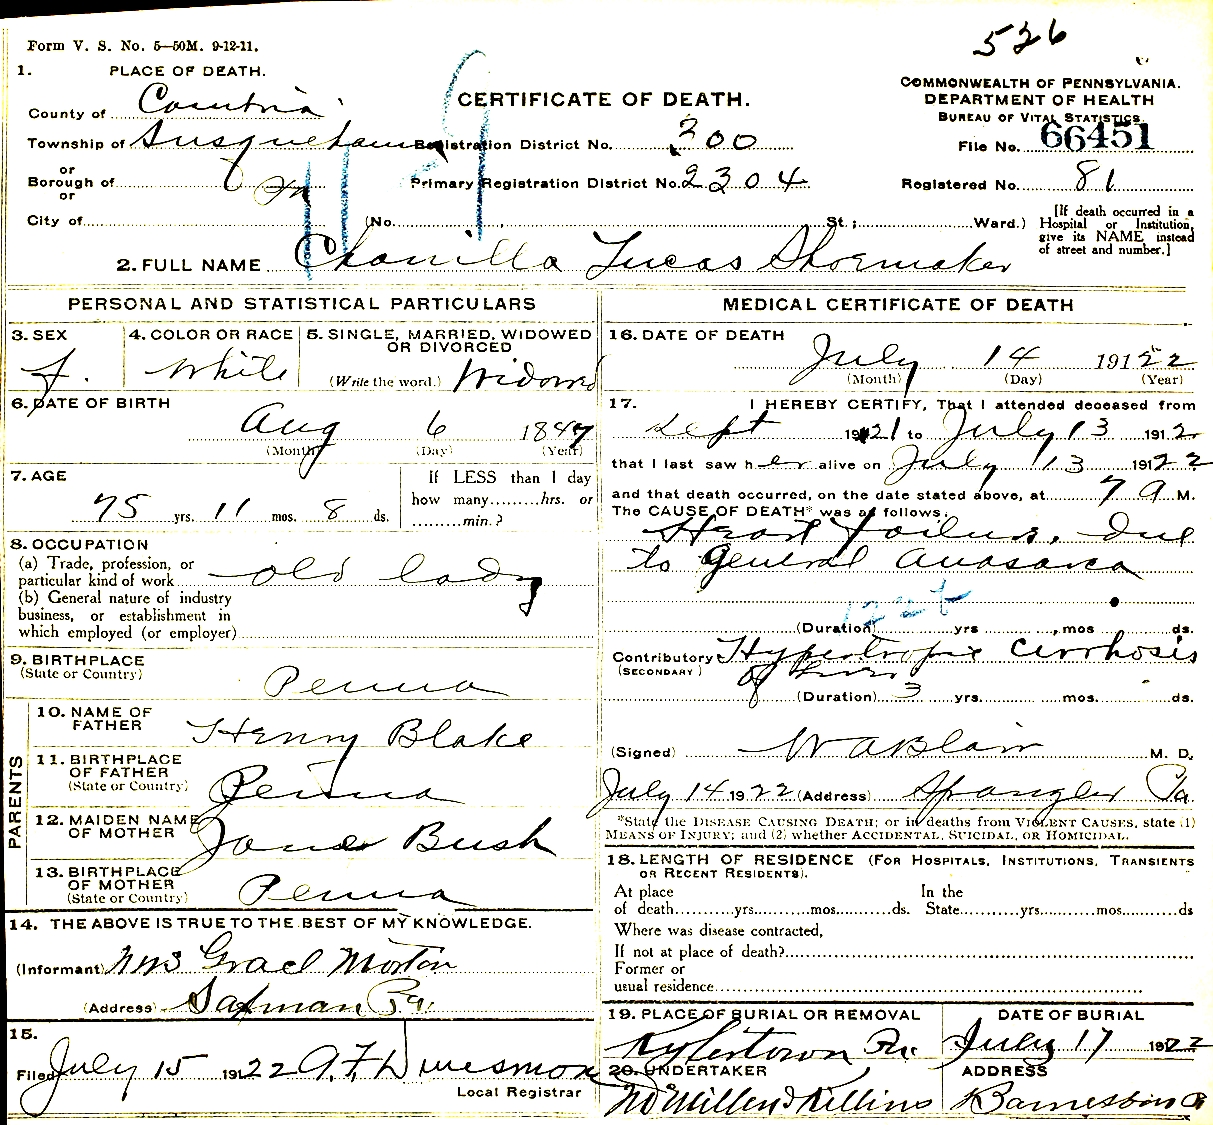 526
Form V. S. No. 5—50M. 9-12-11.
1. PLACE OF DEATH.
County of Cambria
Township of Susquehanna
or
Borough of
or
City of
CERTIFICATE OF DEATH.
Registration District No. 300
Primary Registration District No. 2304
(No. St.; Ward.)
COMMONWEALTH OF PENNSYLVANIA.
DEPARTMENT OF HEALTH
BUREAU OF VITAL STATISTICS
File No. 66451
Registered No. 81
[If death occurred in a
Hospital or Institution,
give its NAME instead
of street and number.]
2. FULL NAME Charilla Lucas Shoemaker
PERSONAL AND STATISTICAL PARTICULARS
3. SEX
f.
4. COLOR OR RACE
White
5. SINGLE, MARRIED, WIDOWED
OR DIVORCED
(Write the word.) Widowed
6. DATE OF BIRTH
Aug 6 1847
(Month) (Day) (Year)
7. AGE
75 yrs. 11 mos. 8 ds.
If LESS than 1 day
how many........hrs. or
........min.?
8. OCCUPATION
(a) Trade, profession, or
particular kind of work old lady
(b) General nature of industry
business, or establishment in
which employed (or employer)
9. BIRTHPLACE
(State or Country)
Penna
PARENTS
10. NAME OF
FATHER Henry Blake
11. BIRTHPLACE
OF FATHER
(State or Country) Penna
12. MAIDEN NAME
OF MOTHER Jane Bush
13. BIRTHPLACE
OF MOTHER
(State or Country) Penna
14. THE ABOVE IS TRUE TO THE BEST OF MY KNOWLEDGE.
(Informant) Mrs Grace Morton
(Address) Pa.
15.
Filed July 15 1922 A. F. Dinsmore
Local Registrar
MEDICAL CERTIFICATE OF DEATH
16. DATE OF DEATH
July 14 191222
(Month) (Day) (Year)
17. I HEREBY CERTIFY, That I attended deceased from
Sept 1921 to July 13 1912
that I last saw her alive on July 13 191222
and that death occurred, on the date stated above, at 7 a M.
The CAUSE OF DEATH* was as follows:
Heart failure, due
to general anasarca
(Duration) yrs. mos ds.
Contributory Hypertrophic cirrhosis
(SECONDARY) of liver
(Duration) 3 yrs. mos. ds.
(Signed) W A Blair M. D.
July 14 1922 (Address) Spangler Pa
*State the DISEASE CAUSING DEATH; or in deaths from VIOLENT CAUSES, state (1)
MEANS OF INJURY; and (2) whether ACCIDENTAL, SUICIDAL, OR HOMICIDAL.
18. LENGTH OF RESIDENCE (FOR HOSPITALS, INSTITUTIONS, TRANSIENTS
OR RECENT RESIDENTS).
At place In the
of death..........yrs..........mos..........ds. State..........yrs..........mos..........ds
Where was disease contracted,
If not at place of death?
Former or
usual residence
19. PLACE OF BURIAL OR REMOVAL
Kylertown Pa.
DATE OF BURIAL
July 17 1922
20. UNDERTAKER
McMillen & Killins
ADDRESS
Barnesboro Pa